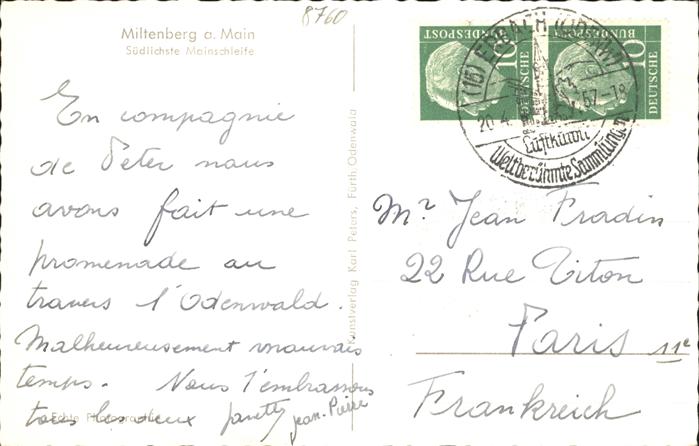 8760
Miltenberg a. Main
Südlichste Mainschleife
En compagnie
de Peter nous
avons fait une
promenade au
travers l'Odenwald.
Malheureusement mauvais
temps. Nous t'embrassons
tous les deux
Jean-Pierre
Echte Photographie
Kunstverlag Karl Peters, Fürth, Odenwald
10 DEUTSCHE BUNDESPOST
10 DEUTSCHE BUNDESPOST
(16) ERBACH (ODENW)
20.4.57-18
Luftkurort
Weltberühmte Sammlungen
Mr Jean Fradin
22 Rue Titon
Paris 11e
Frankreich